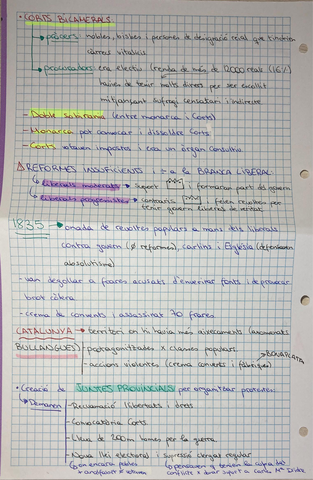 · CORTS BICAMERALS
→ pròcers: nobles, bisbes i persones de designació reial que tindrien
càrrecs vitalicis
→ procuradors: era electiu (renda de més de 12000 reals (16%)
havien de tenir molts diners per ser escollit
mitjançant sufragi censatari i indirecte
- Doble sobirania (entre monarca i Corts)
- Monarca pot convocar i dissoldre Corts
- Corts votaven impostos i era un òrgan consultiu
REFORMES INSUFICIENTS: → a la BRANCA LIBERAL:
↳ liberals moderats → suport | formaran part del govern
↳ liberals progressistes → contraris | feien revoltes per
tenir govern liberal de veritat
1835 → onada de revoltes populars a mans dels liberals
contra govern (Ø reformes), carlins i Església (defensaven
absolutisme)
- van degollar a frares acusats d'enverinar fonts i de provocar
brot còlera
- crema de convents i assassinat 70 frares
CATALUNYA → territori on hi havia més aixecaments (anomenats
BULLANGUES) - protagonitzades x classes populars
- accions violentes (crema convents i fàbriques)
→ BONAPLATA
· Creació de JUNTES PROVINCIALS per organitzar protestes:
↳ Demanen - Restauració llibertats i drets
- Convocatòria Corts
- Lleva de 200m homes per la guerra
- Nova llei electoral i supressió clergat regular